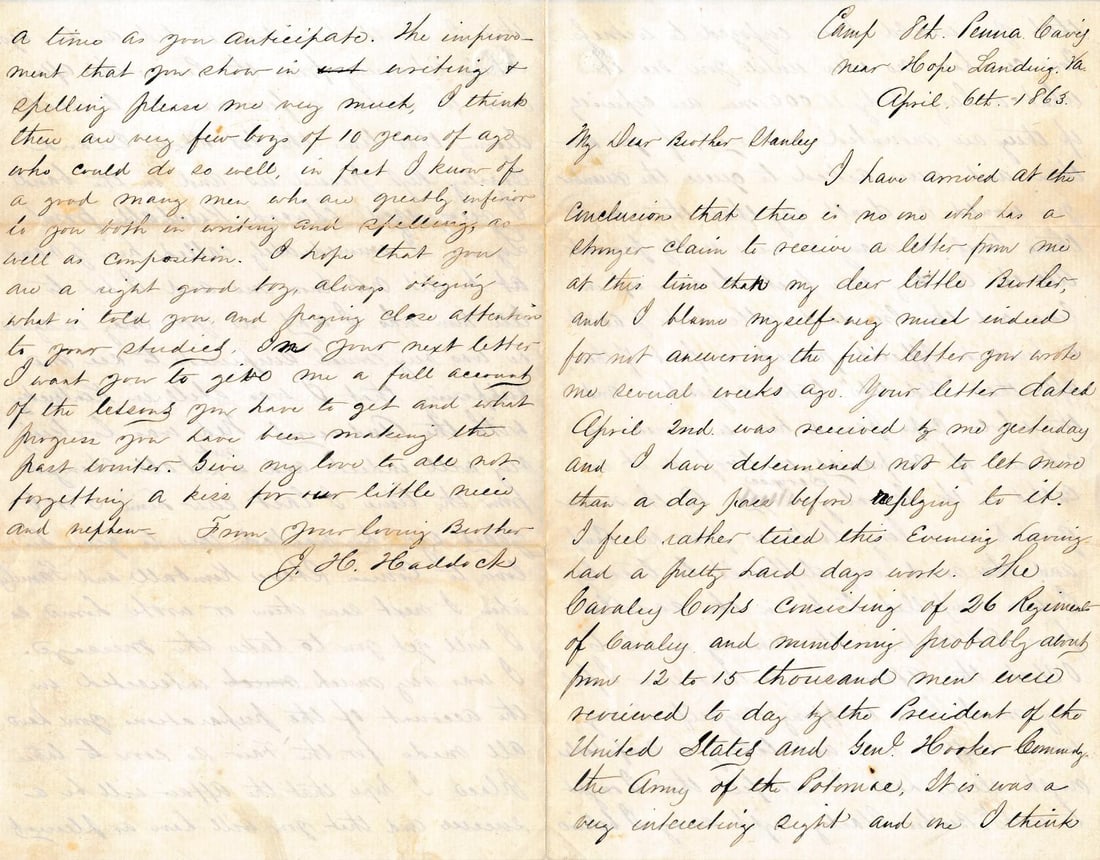 Camp 8th. Penna Cavy
near Hope Landing. Va.
April. 6th. 1863.
My Dear Brother Stanley
I have arrived at the
conclusion that there is no one who has a
stronger claim to receive a letter from me
at this time than my dear little Brother,
and I blame myself very much indeed
for not answering the first letter you wrote
me several weeks ago. Your letter dated
April 2nd. was received by me yesterday
and I have determined not to let more
than a day pass before replying to it.
I feel rather tired this Evening having
had a pretty hard days work. The
Cavalry Corps consisting of 26 Regiments
of Cavalry, and numbering probably about
from 12 to 15 thousand men were
reviewed to day by the President of the
United States and Genl. Hooker Commdg.
the Army of the Potomac, It is was a
very interesting sight and one I think
a time as you anticipate. The improve-
ment that you show in writing &
spelling please me very much, I think
there are very few boys of 10 years of age
who could do so well, in fact I know of
a good many men who are greatly inferior
to you both in writing and spelling, as
well as composition. I hope that you
are a right good boy, always obeying
what is told you, and paying close attention
to your studies. In your next letter
I want you to give me a full account
of the lessons you have to get and what
progress you have been making the
past winter. Give my love to all not
forgetting a kiss for our little niece
and nephew- From your loving Brother
J. H. Haddock